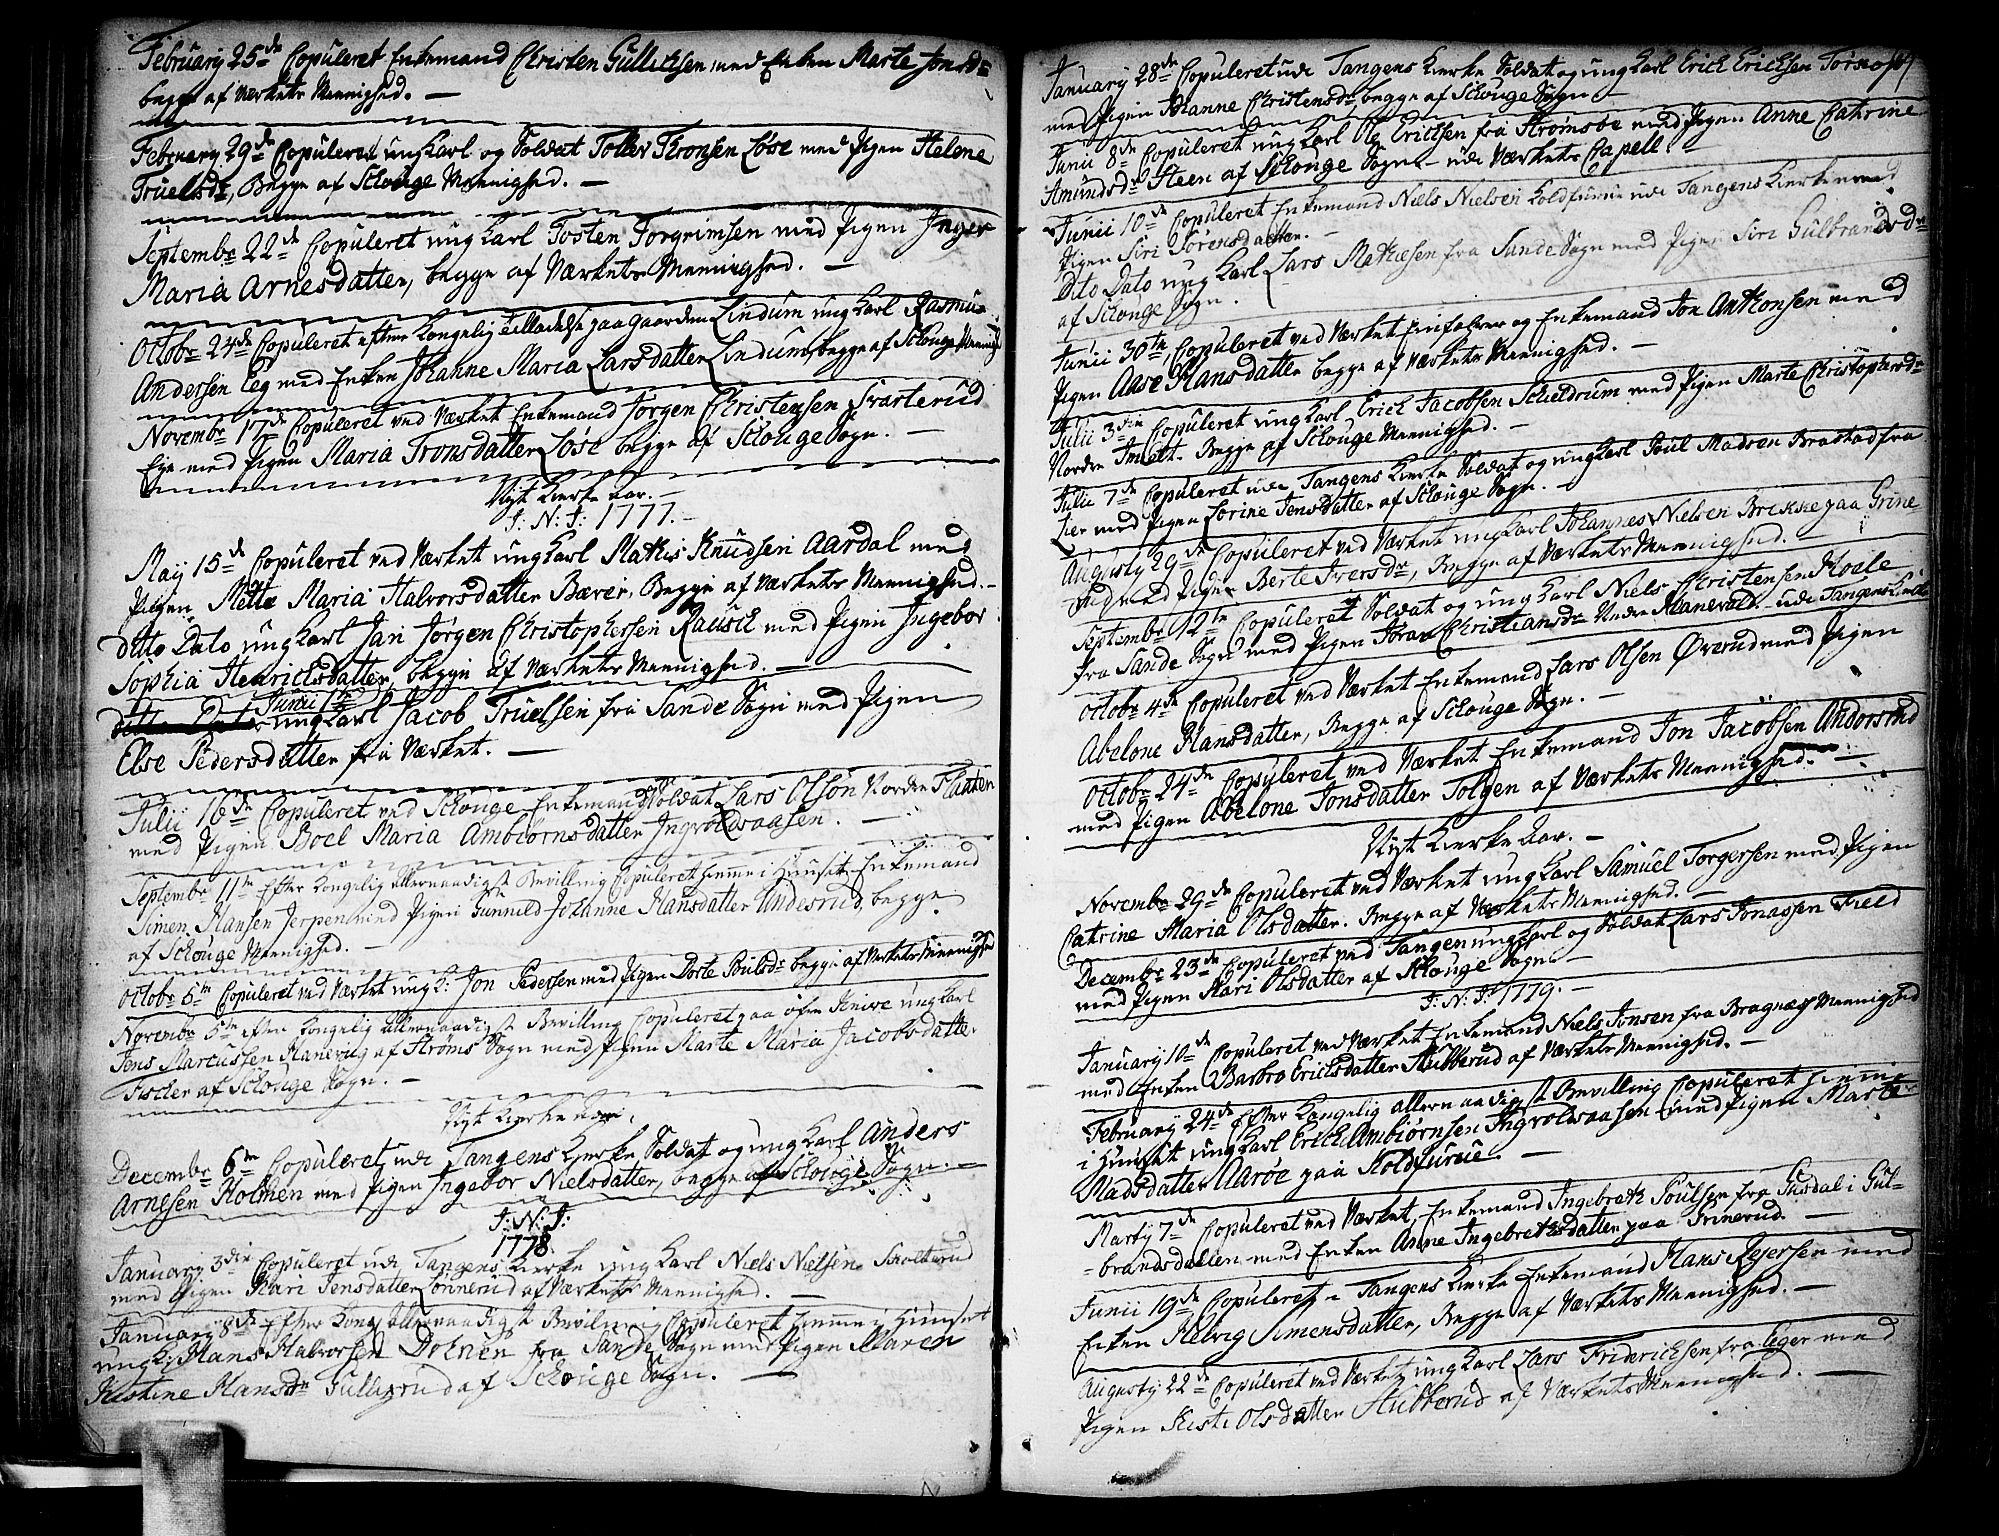 February 25de Copuleret Enkemand Christen Gullichsen med Enken Marte Jonsdr
begge af Værkets Menighed. —
February 29de Copuleret ungkarl og Soldat Toller Tronsen Løse med Pigen Helene
Truelsdr, Begge af Schouge Menighed. —
Septembr 22de Copuleret ungkarl Tosten Torgrimsen med Pigen Inger
Maria Arnesdatter, begge af Værkets Menighed. —
Octobr 24de Copuleret efter Kongelig Tilladelse paa Gaarden Lindum ungkarl Rasmus
Andersen Eeg med Enken Johanne Maria Larsdatter Lindum, begge af Schouge Menigh
Novembr 17de Copuleret ved Værket Enkemand Jørgen Christensen Svarterud
Eye med Pigen Maria Tronsdatter Løse begge af Schouge Sogn. —
Nyt Kierke Aar. —
I: N: I: 1777. —
May 15de Copuleret ved Værket ungkarl Mathis Knudsen Aardal med
Pigen Mette Maria Halvorsdatter Bærer, Begge af Værkets Menighed. —
Ditto Dato ungkarl Jan Jørgen Christophersen Rausch med Pigen Ingebor
Sophia Henrichsdatter, begge af Værkets Menighed. —
Junii
ungkarl Jacob Truelsen fra Sande Sogn med Pigen
Else Pedersdatter fra Værket. —
Julii 16de Copuleret ved Schouge Enkemand Soldat Lars Olsøn Nordre Flaaten
med Pigen Boel Maria Ambiornsdatter Ingvoldsaasen. —
Septembr 11te Efter Kongelig allernaadigst Bevilling Copuleret hiemme i Huuset Enkemand
Simen Hansen Jerpen med Pigen Gunnild Johanne Hansdatter Undesrud, begge
af Schouge Menighed. —
Octobr 6te Copuleret ved Værket ungk: Jon Pedersen med Pigen Dorte Poulsdr begge af Værkets Menighed
Novembr 5te efter Kongelig allernaadigst Bevilling Copuleret paa øfre ungkarl
Jens Marcussen Hanevig af Strøms Sogn med Pigen Marte Maria Jacobsdatter
Fischer af Schouge Sogn. —
Nyt Kierke Aar.
Decembr 6te Copuleret udi Tangens Kierke Soldat og ungkarl Anders
Arnesen Holmen med Pigen Ingebor Nielsdatter, begge af Schouge Sogn. —
I: N: I:
1778.
January 3die Copuleret udi Tangens Kierke ungkarl Niels Nielsen Skalterud
med Pigen Kari Jensdatter Lønnerud af Værkets Menighed. —
January 8de Efter Kong: Allernaadigst Bevilning Copuleret hiemme i Huuset
ungk: Hans Halvorsen Dolnen fra Sande Sogn med Pigen Maren
Kistine Hansdr Gullerud af Schouge Sogn. —
January 28de Copuleret udi Tangens Kierke Soldat og ungkarl Erich Erichsen
med Pigen Hanne Christensdr, begge af Schouge Sogn —
Junii 8de Copuleret ungkarl Ole Erichsen fra Strømsøe med Pigen Anne Cathrine
Amundsdr Steen af Schouge Sogn — udi Værkets Capell. —
Junii 10de Copuleret Enkemand Niels Nielsen Koldfurue udi Tangens Kierke med
Pigen Siri Sørensdatter. —
Dito Dato ungkarl Lars Mathesen fra Sande Sogn med Pigen Siri Gulbrandsdr
af Schouge Sogn.
Junii 30te Copuleret ved Værket Einfolver og Enkemand Jon Anthonsen med
Pigen Aase Hansdatter begge af Værkets Menighed. —
Julii 3die Copuleret ungkarl Erich Jacobsen Scheldrum med Pigen Marte Christophersdr
Nordre Begge af Schouge Menighed. —
Julii 7de Copuleret udi Tangens Kierke Soldat og ungkarl Poul Madsen Brastad fra
Lier med Pigen Lorine Jensdatter af Schouge Sogn. —
Augusty 29de Copuleret ved Værket ungkarl Johannes Nielsen Brekke paa Grine
rud med Pigen Berte Iversdr, Begge af Værkets Menighed. —
Septembr 12te Copuleret Soldat og ungkarl Niels Christensen Hoale
fra Sande Sogn med Pigen Toran Christiansdr Nedre Hanevald — udi Tangens Kierke
Octobr 4de Copuleret ved Værket Enkemand Lars Olsen Øverud med Pigen
Abelone Hansdatter, Begge af Schouge Sogn. —
Octobr 24de Copuleret ved Værket Enkemand Jon Jacobsen Andorsrud
med Pigen Abelone Jonsdatter Tolgen af Værkets Menighed. —
Nyt Kierke Aar. —
Novembr 29de Copuleret ved Værket ungkarl Samuel Torgersen med Pigen
Catrine Maria Olsdatter. Begge af Værkets Menighed. —
Decembr 23de Copuleret ved Tangen ungkarl og Soldat Lars Jonassen Field
med Pigen Kari Olsdatter af Schouge Sogn. —
I: N: I: 1779. —
January 10de Copuleret ved Værket Enkemand Niels Jonsen fra Bragnæs Menighed
med Enken Barbro Erichsdatter Hubberud af Værkets Menighed. —
February 24de Efter Kongelig allernaadigst Bevilling Copuleret hiemme
i Huuset ungkarl Erich Ambiørnsen Ingvoldsaasen med Pigen Marte
Madsdatter Aarøe paa Koldfurue. —
Marty 7de Copuleret ved Værket, Enkemand Ingebreth Poulsen fra Gusdal i Gul-
-brandsdallen med Enken Anne Ingebrethsdatter paa Grinerud. —
Junii 19de Copuleret i Tangens Kierke Enkemand Hans Pejersen med
Enken Helvig Simensdatter, Begge af Værkets Menighed. —
Augusty 22de Copuleret ved Værket ungkarl Lars Friderichsen fra Eeger med
Pigen Kisti Olsdatter Hubberud af Værkets Menighed. —